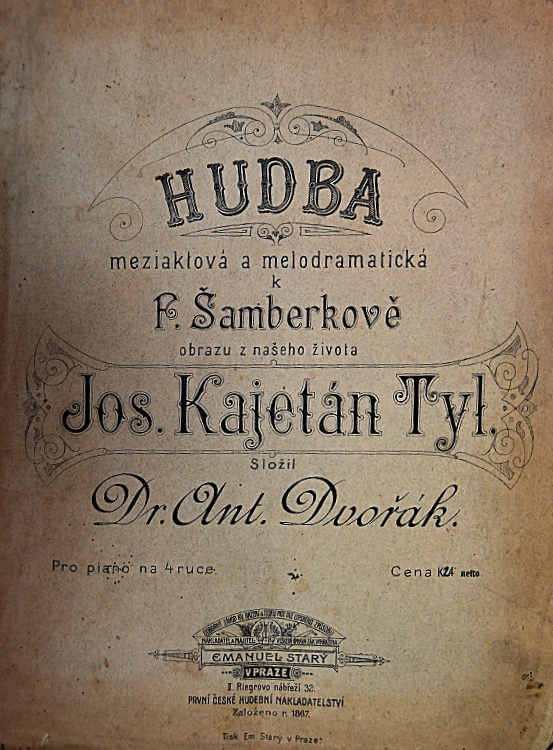 HUDBA
meziaktová a melodramatická
k
F. Šamberkově
obrazu z našeho života
Jos. Kajetán Tyl.
Složil
Dr. Ant. Dvořák.
Pro piano na 4 ruce.
Cena K netto
EMANUEL STARÝ
V PRAZE
II. Riegrovo nábřeží 32.
PRVNÍ ČESKÉ HUDEBNÍ NAKLADATELSTVÍ
Založeno r. 1867.
Tisk Em. Starý v Praze.